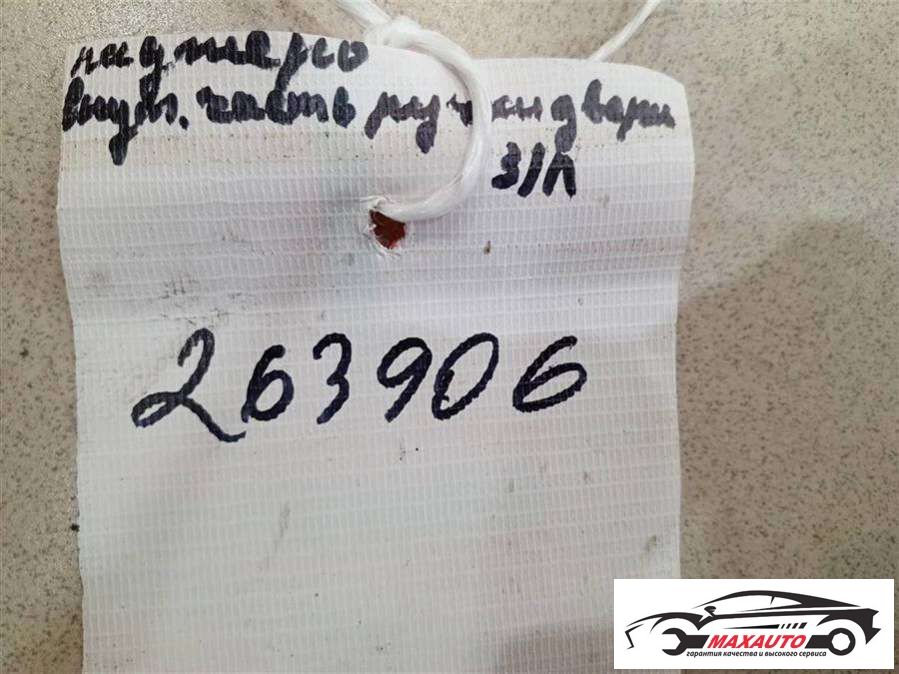 внутр. часть ручки двери
З/Л
263906
MAXAUTO
гарантия качества и высокого сервиса